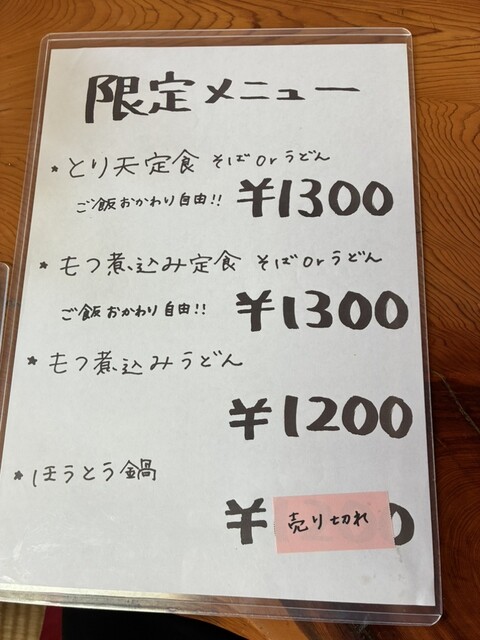 限定メニュー
* とり天定食 そばorうどん
ご飯おかわり自由!! ¥1300
* もつ煮込み定食 そばorうどん
ご飯おかわり自由!! ¥1300
* もつ煮込みうどん
¥1200
* ほうとう鍋
¥ 売り切れ 0